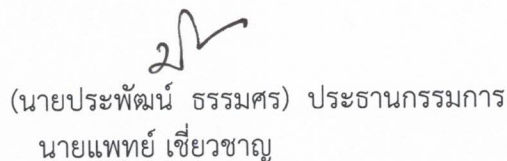 (นายประพัฒน์ ธรรมศร) ประธานกรรมการ
นายแพทย์ เชี่ยวชาญ